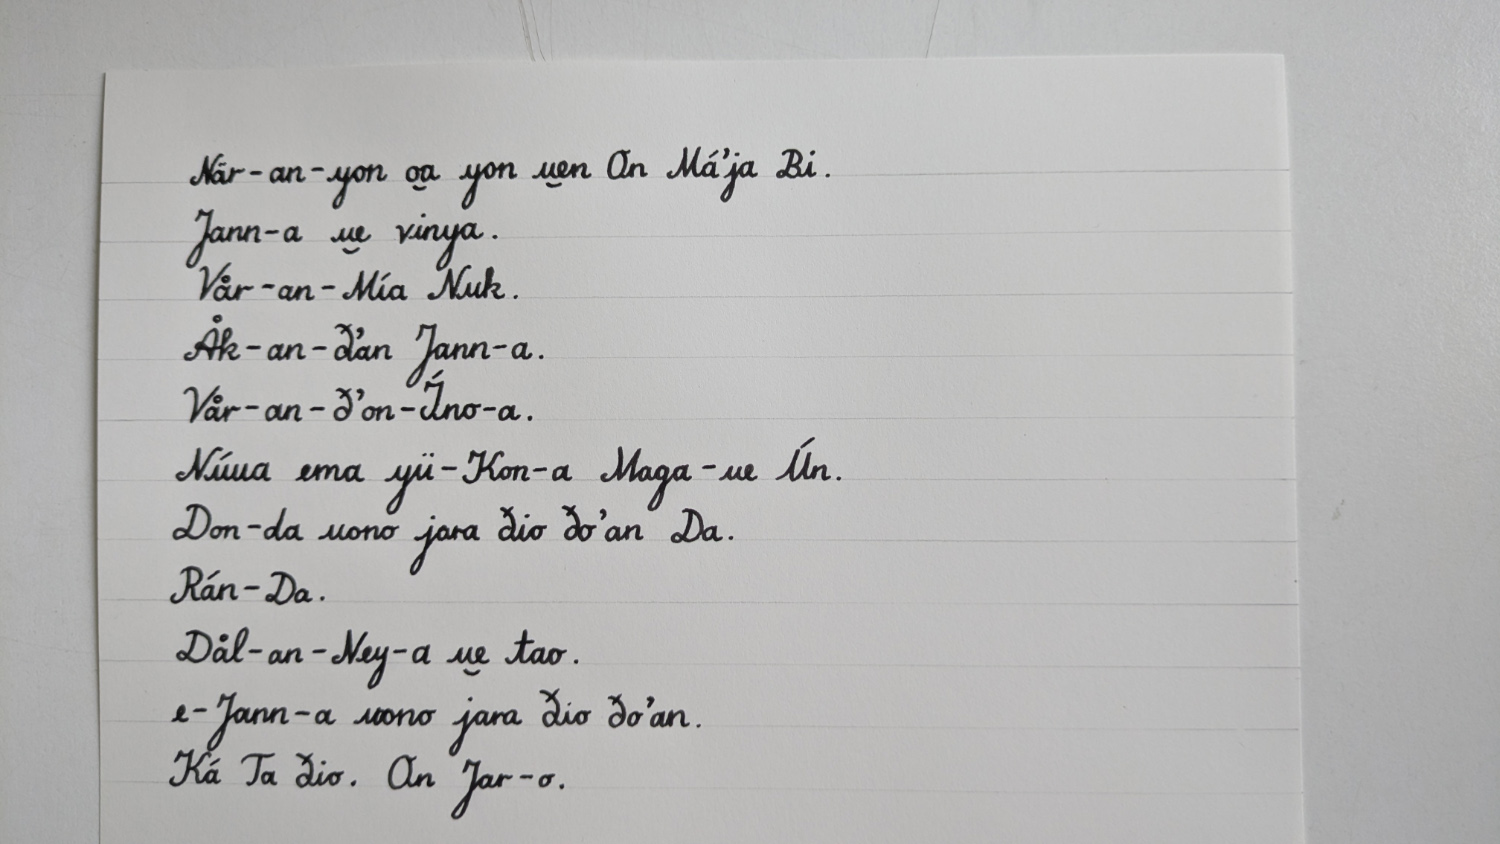 När-an-yon o̮a yon u̮en An Má'ja Bi.
Jann-a u̮e vinya.
Vår-an-Mía Nuk.
Åk-an-ð'an Jann-a.
Vår-an-ð'on-Íno-a.
Núua ema yü-Kon-a Maga-ue Ún.
Don-da uono jara ðio ðo'an Da.
Rán-Da.
Dål-an-Ney-a u̮e tao.
e-Jann-a uono jara ðio ðo'an.
Ká Ta ðio. An Jar-o.